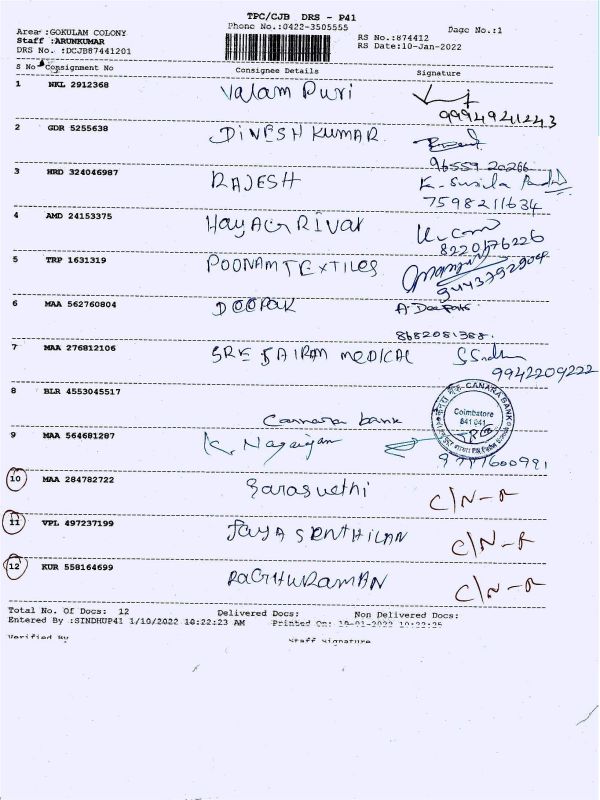 TPC/CJB DRS - P41
Phone No.:0422-3505555
Page No.:1
Area :GOKULAM COLONY
Staff :ARUNKUMAR
DRS No. :DCJB87441201
RS No.:874412
RS Date:10-Jan-2022
S No Consignment No Consignee Details Signature
1 NKL 2912368 Valam Puri
99949241243
2 GDR 5255638 DINESH KUMAR
96559 20266
3 HRD 324046987 RAJESH K. Susila
7598211634
4 AMD 24153375 HayAGRIVar
8220176226
5 TRP 1631319 POONAM TEXTILES
9443792904
6 MAA 562760804 DEEPAK A. Deepak
8682081388.
7 MAA 276812106 SRE SAIRAM MEDICAL
9942209222
8 BLR 4553045517 Cannara bank
CANARA BANK
Coimbatore
641 041
9 MAA 564681287 K. Nagaigan
10 MAA 284782722 Sarasvethi C/N-R
11 VPL 497237199 JAYA SENTHILAN C/N-R
12 KUR 558164699 RAGHURAMAN C/N-R
Total No. Of Docs: 12 Delivered Docs: Non Delivered Docs:
Entered By :SINDHUP41 1/10/2022 10:22:23 AM Printed On: 10-01-2022 10:22:25
Verified By Staff Signature